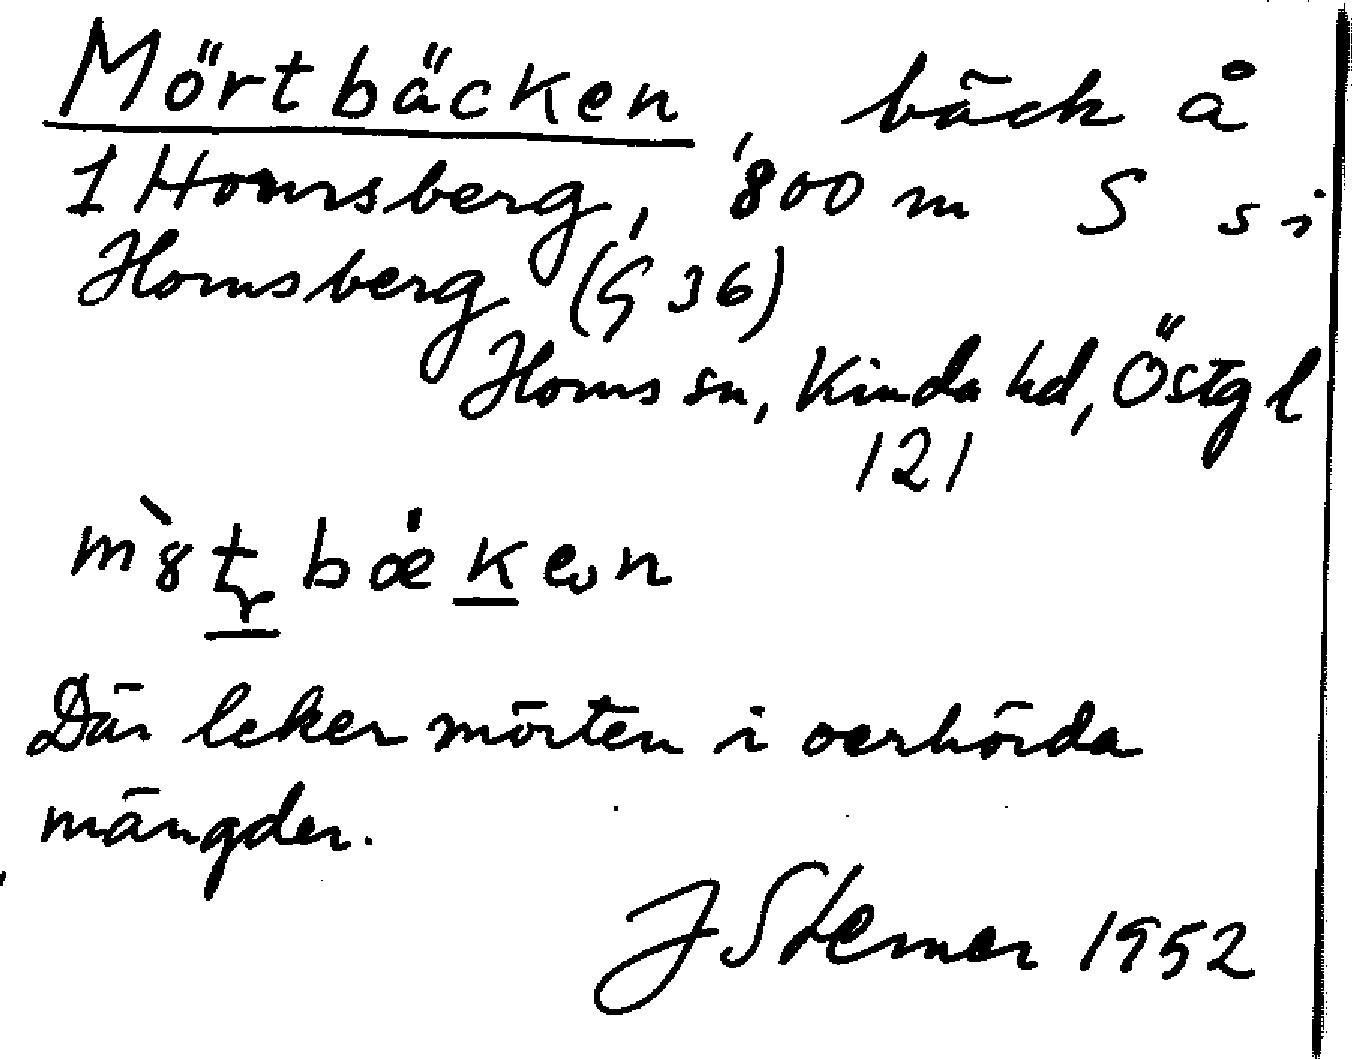 Mörtbäcken, bäck å
1 Homsberg, 800 m S si
Homsberg (G 36)
Homs sn, Kinda hd, Östgl
121
m`8t bœken
Där leker mörten i oerhörda
mängder.
J Sterner 1952